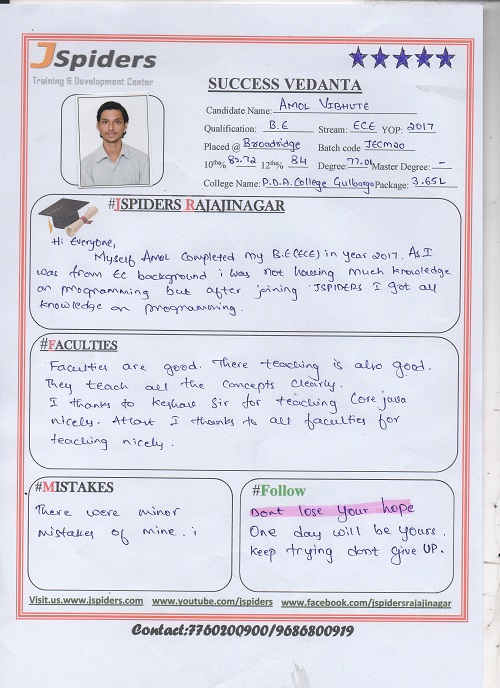 JSpiders
Training & Development Center
SUCCESS VEDANTA
Candidate Name: AMOL VIBHUTE
Qualification: B.E Stream: ECE YOP: 2017
Placed @ Broadridge Batch code JECM20
10th% 82.72 12th% 84 Degree: 77.04 Master Degree: -
College Name: P.D.A. College Gulbarga Package: 3.65L
#JSPIDERS RAJAJINAGAR
Hi Everyone,
Myself Amol Completed my B.E(ECE) in year 2017. As I
was from EC background i was not having much knowledge
on programming but after joining JSPIDERS I got all
knowledge on programming.
#FACULTIES
Faculties are good. There teaching is also good.
They teach all the concepts clearly.
I thanks to Keshav Sir for teaching Core java
nicely. Atlast I thanks to all faculties for
teaching nicely.
#MISTAKES
There were minor
mistakes of mine. i
#Follow
Dont lose your hope
One day will be yours.
Keep trying dont give UP.
Visit.us.www.jspiders.com www.youtube.com/jspiders www.facebook.com/jspidersrajajinagar
Contact:7760200900/9686800919